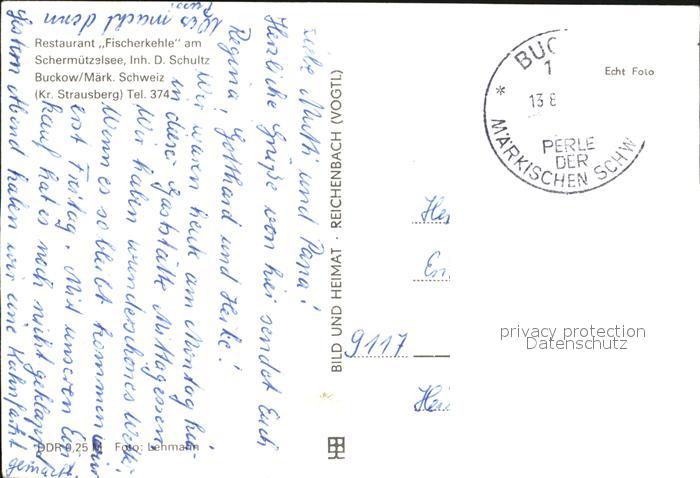 Restaurant „Fischerkehle" am
Schermützelsee, Inh. D. Schultz
Buckow/Märk. Schweiz
(Kr. Strausberg) Tel. 374
Liebe Mutti und Papa!
Herzliche Grüße von hier sendet Euch
Regina, Gotthard und Heike!
Wir waren heute am Montag hier
in dieser Gaststätte Mittagessen.
Wir haben wunderschönes Wetter.
Wenn es so bleibt kommen wir
erst Freitag. Mit unseren Ein-
kauf hat es noch nicht geklappt.
Gestern Abend haben wir eine Kahnfahrt gemacht.
Was macht denn
DDR 0,25 M Foto: Lehmann
BILD UND HEIMAT · REICHENBACH (VOGTL)
Echt Foto
BUC
1
* 13 8
PERLE
DER
MÄRKISCHEN SCHW
9117
privacy protection
Datenschutz